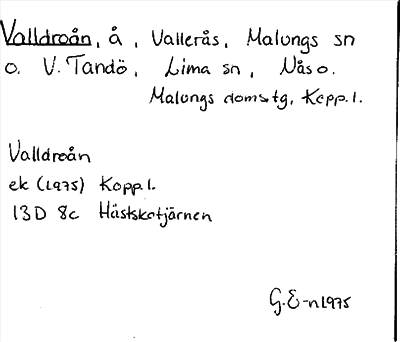 Valldroån, å, Vallerås, Malungs sn
o. V. Tandö, Lima sn, Nås o.
Malungs domstg, Kopp.l.
Valldroån
ek (1975) Kopp.l.
13D 8c Hästskotjärnen
G.E-n 1975